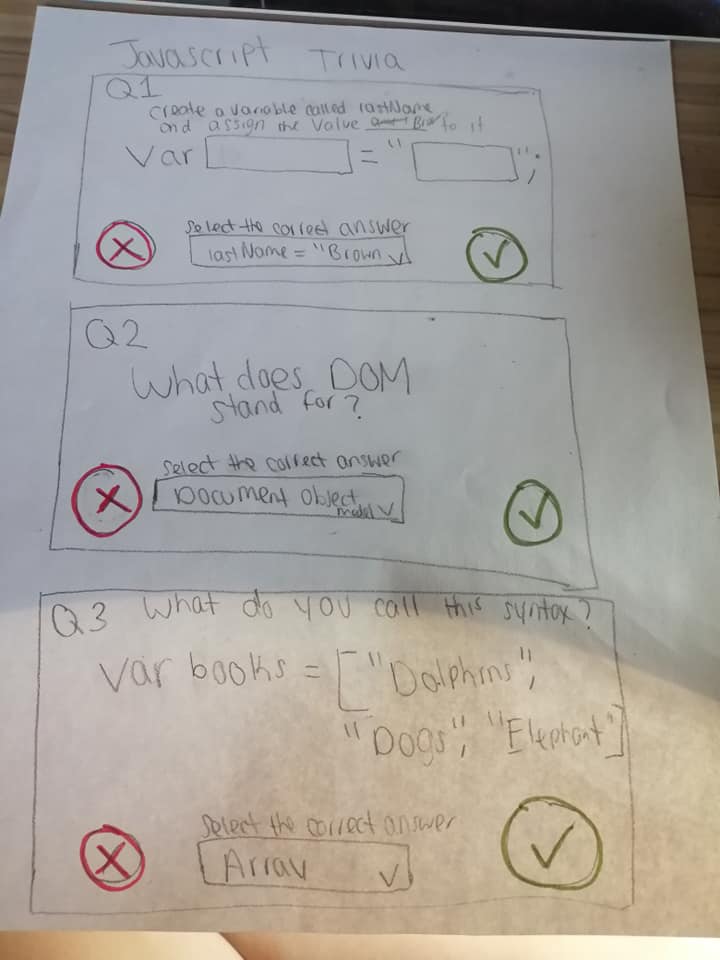 Javascript Trivia
Q1
Create a variable called lastName
and assign the value to it
Var = " ";
Select the correct answer
lastName = "Brown
Q2
What does DOM
stand for?
Select the correct answer
Document Object
model
Q3 What do you call this syntax?
Var books = ["Dolphins",
"Dogs", "Elephant"]
Select the correct answer
Array